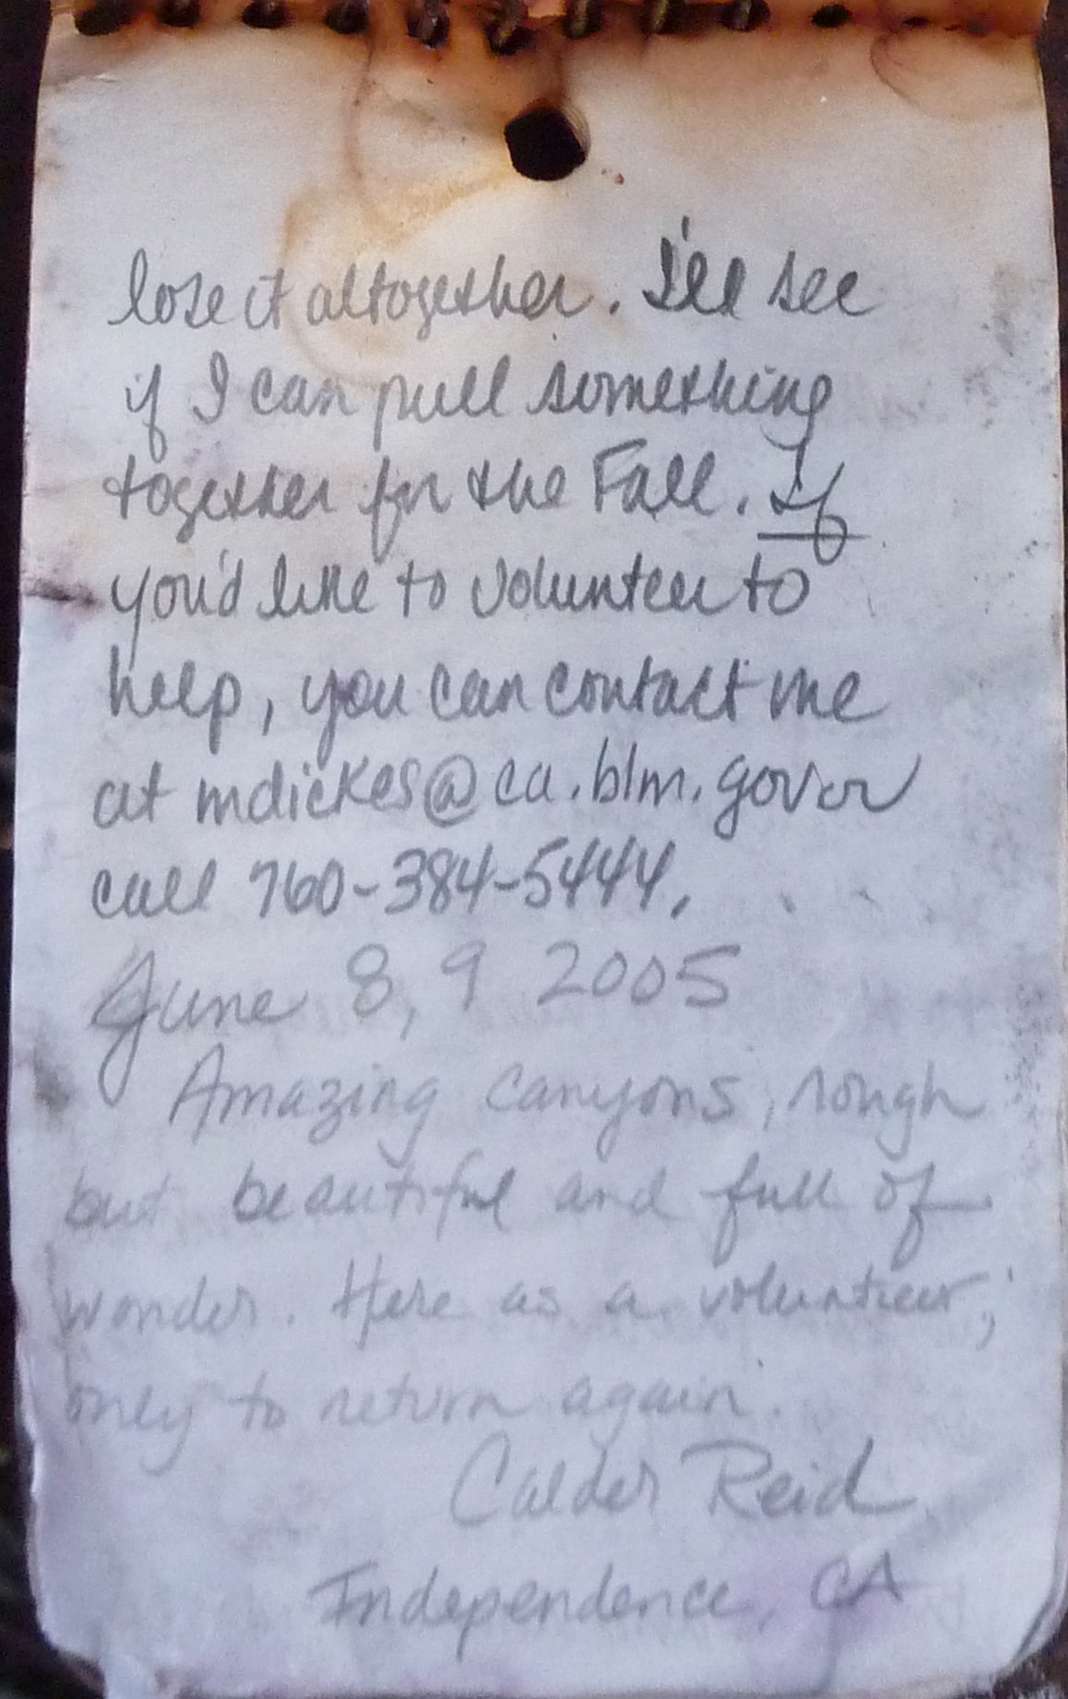 lose it altogether. I'll see
if I can pull something
together for the Fall. If
you'd like to volunteer to
help, you can contact me
at mdickes@ca.blm.gov or
call 760-384-5444.
June 8, 9 2005
Amazing canyons, rough
but beautiful and full of
wonder. Here as a volunteer;
only to return again.
Calder Reid
Independence, CA